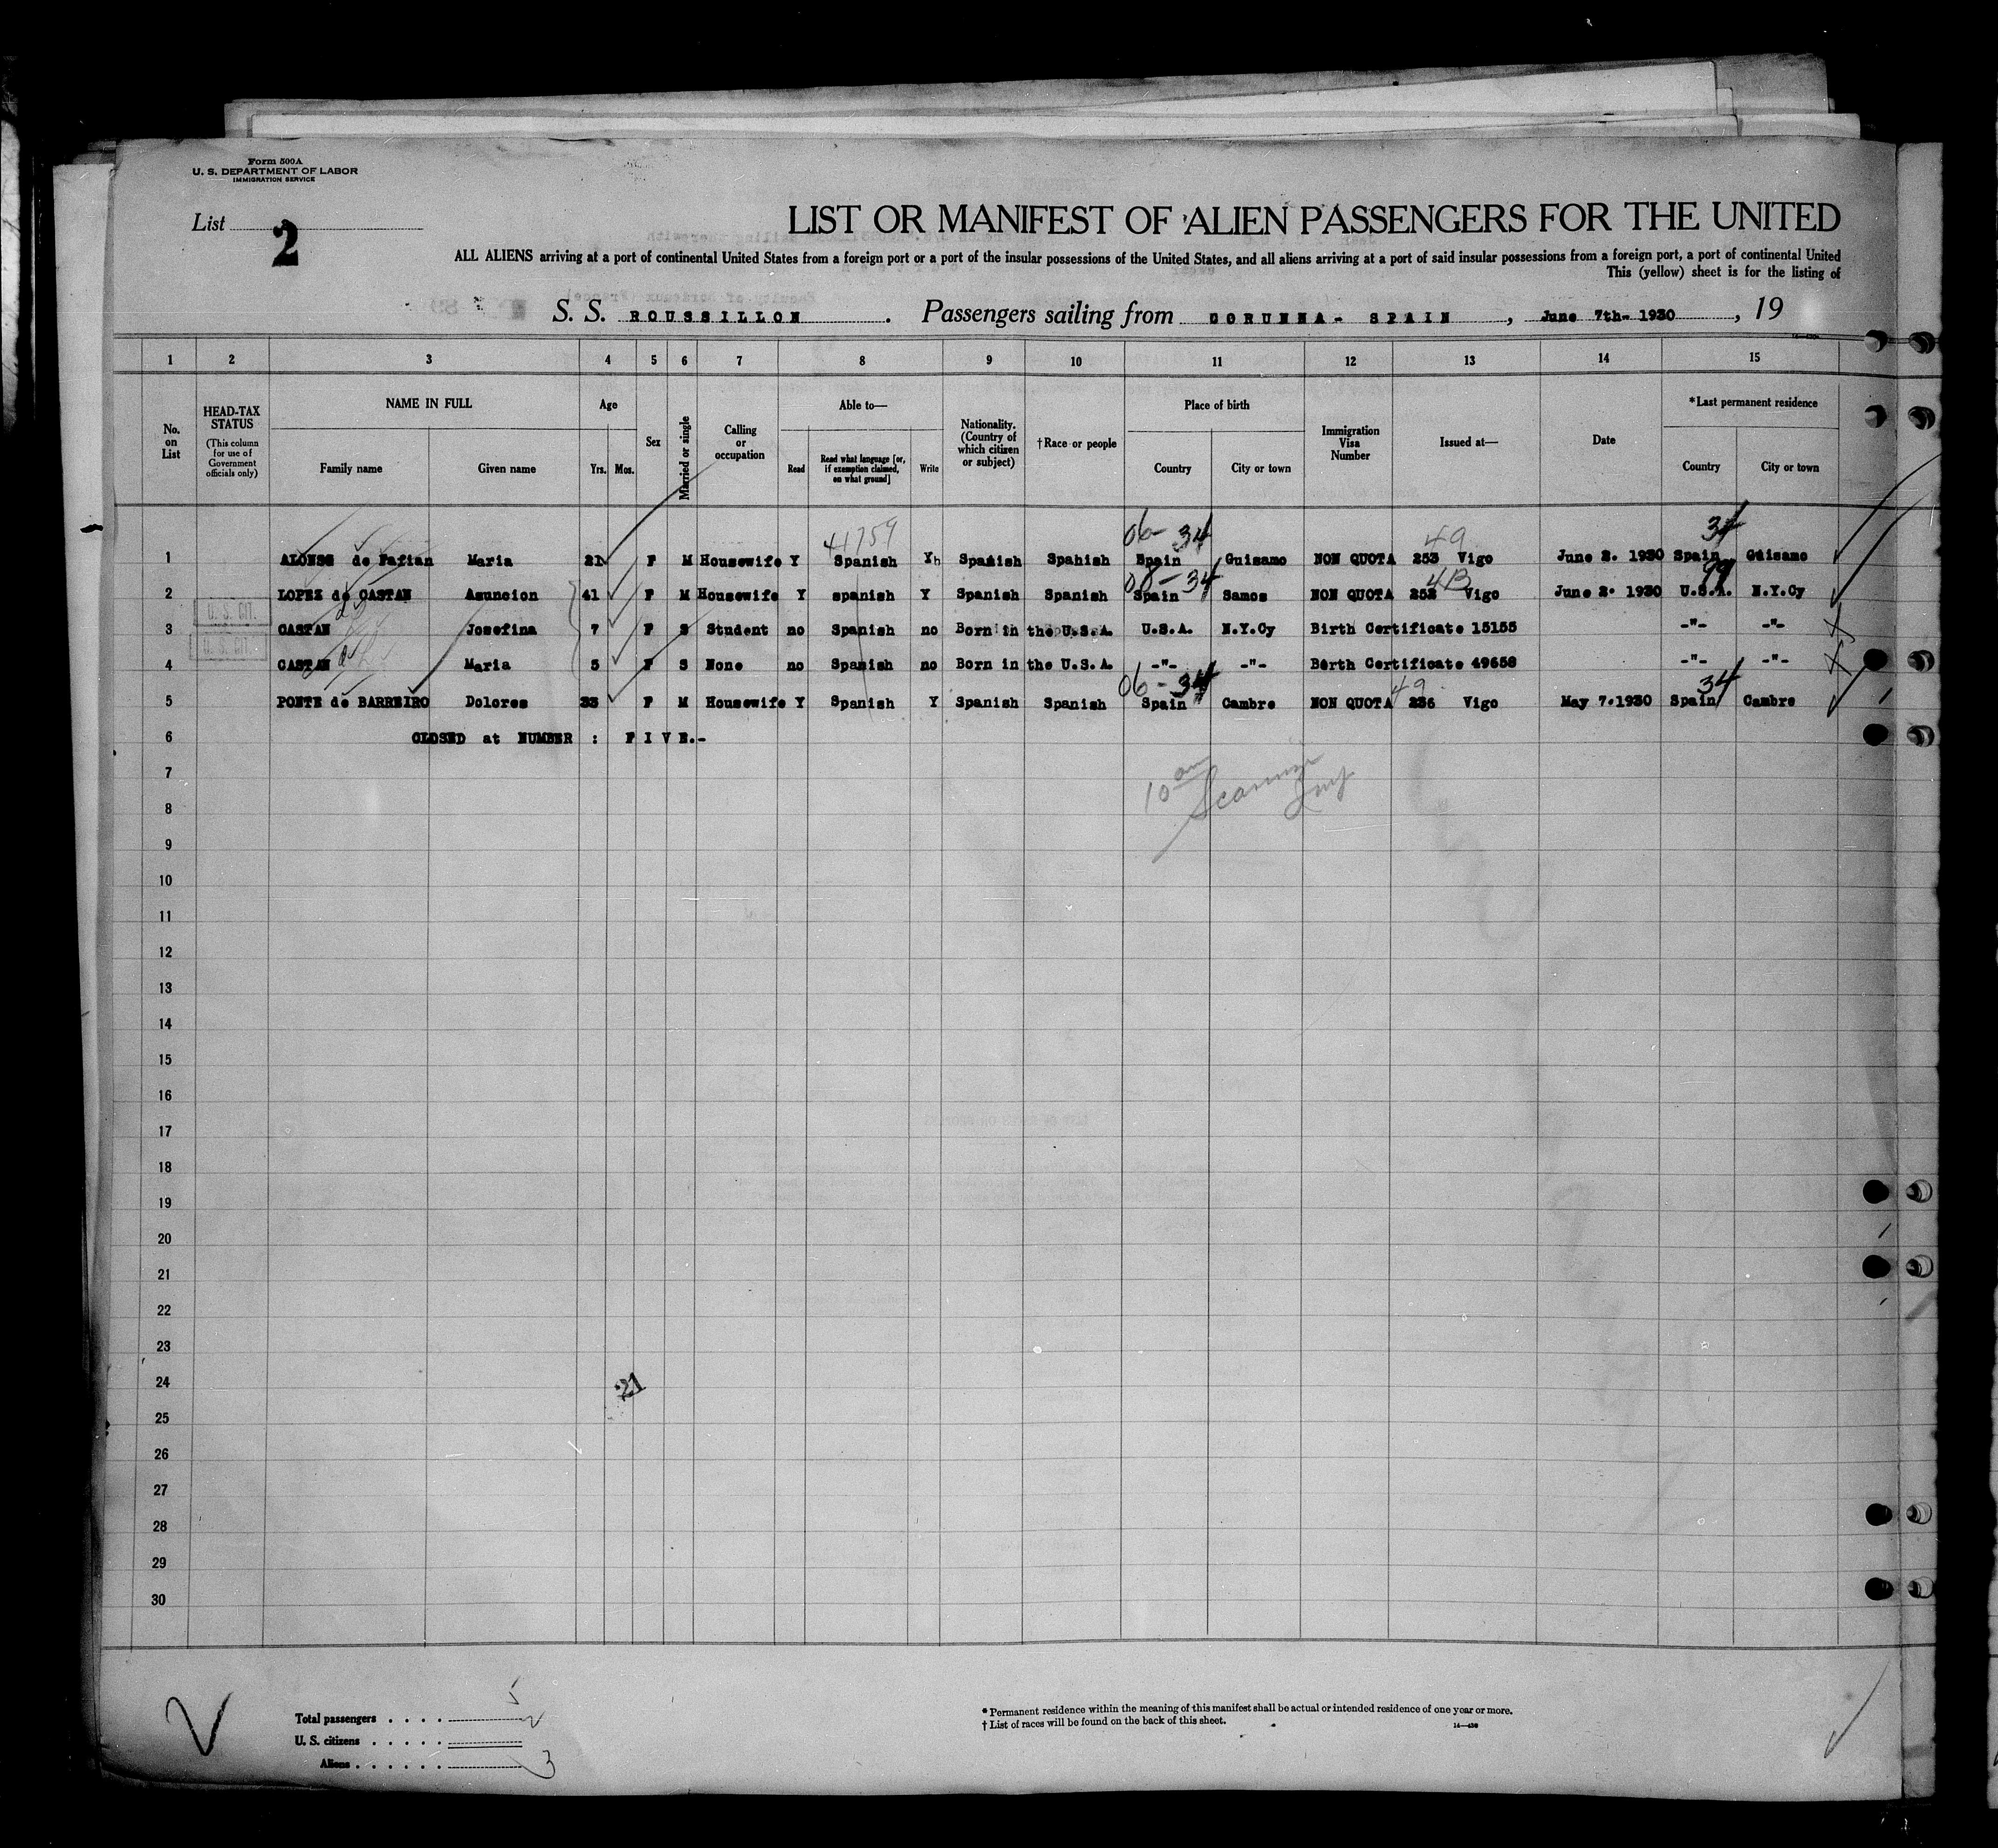 Form 500A
U. S. DEPARTMENT OF LABOR
IMMIGRATION SERVICE
List 2
LIST OR MANIFEST OF ALIEN PASSENGERS FOR THE UNITED
ALL ALIENS arriving at a port of continental United States from a foreign port or a port of the insular possessions of the United States, and all aliens arriving at a port of said insular possessions from a foreign port, a port of continental United
This (yellow) sheet is for the listing of
S. S. ROUSSILLON . Passengers sailing from CORUNNA- SPAIN , June 7th- 1930 , 19
1 2 3 4 5 6 7 8 9 10 11 12 13 14 15
No. on List
HEAD-TAX STATUS (This column for use of Government officials only)
NAME IN FULL
Family name
Given name
Age
Yrs. Mos.
Sex
Married or single
Calling or occupation
Able to—
Read
Read what language [or, if exemption claimed, on what ground]
Write
Nationality. (Country of which citizen or subject)
†Race or people
Place of birth
Country
City or town
Immigration Visa Number
Issued at—
Date
*Last permanent residence
Country
City or town
41759 06- 34 49 34
1 ALONSO de Fafian Maria 21 F M Housewife Y Spanish Yh Spanish Spahish Spain Guisamo NON QUOTA 253 Vigo June 2. 1930 Spain Guisamo
34 99
2 LOPEZ de CASTAN Asuncion 41 F M Housewife Y spanish Y Spanish Spanish Spain Samos NON QUOTA 252 Vigo June 2. 1930 U.S.A. N.Y.Cy
U. S. CIT.
3 CASTAN Josefina 7 F S Student no Spanish no Born in the U.S.A. U.S.A. N.Y.Cy Birth Certificate 15155 -"- -"-
U. S. CIT.
4 CASTAN Maria 5 F S None no Spanish no Born in the U.S.A. -"- -"- Berth Certificate 49658 -"- -"-
06 - 34 49 34
5 PONTE de BARREIRO Dolores 33 F M Housewife Y Spanish Y Spanish Spanish Spain Cambre NON QUOTA 236 Vigo May 7.1930 Spain Cambre
6 CLOSED at NUMBER : FIVE.-
7
8
9
10
11
12
13
14
15
16
17
18
19
20
21
22
23
24
21
25
26
27
28
29
30
5
Total passengers . . . . 2
U. S. citizens . . . . .
Aliens . . . . . . 3
* Permanent residence within the meaning of this manifest shall be actual or intended residence of one year or more.
† List of races will be found on the back of this sheet.